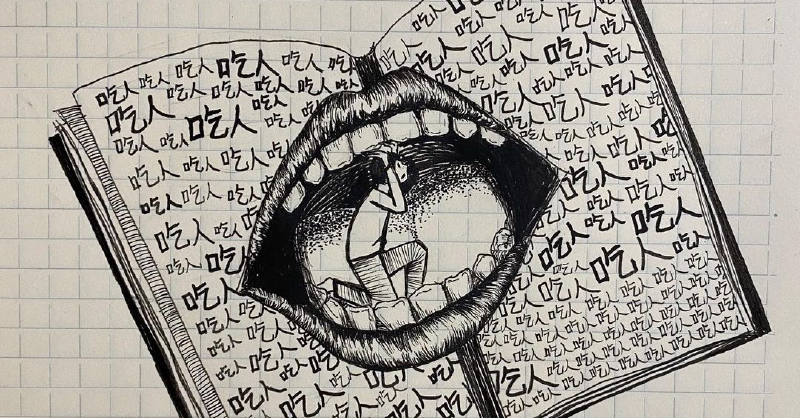 吃人 吃人 吃人 吃人 吃人 吃人
吃人 吃人 吃人 吃人 吃人 吃人
吃人 吃人 吃人 吃人
吃人 吃人 吃人 吃人
吃人 吃人 吃人
吃人 吃人 吃人
吃人 吃人
吃人 吃人
吃人 吃人
吃人 吃人
吃人 吃人 吃人
吃人 吃人 吃人
吃人 吃人 吃人
吃人 吃人 吃人
吃人 吃人 吃人 吃人
吃人 吃人 吃人 吃人
吃人 吃人 吃人 吃人
吃人 吃人 吃人
吃人 吃人 吃人
吃人 吃人 吃人
吃人 吃人 吃人
吃人 吃人 吃人
吃人 吃人 吃人 吃人
吃人 吃人 吃人 吃人 吃人
吃人 吃人 吃人 吃人 吃人
吃人 吃人 吃人 吃人